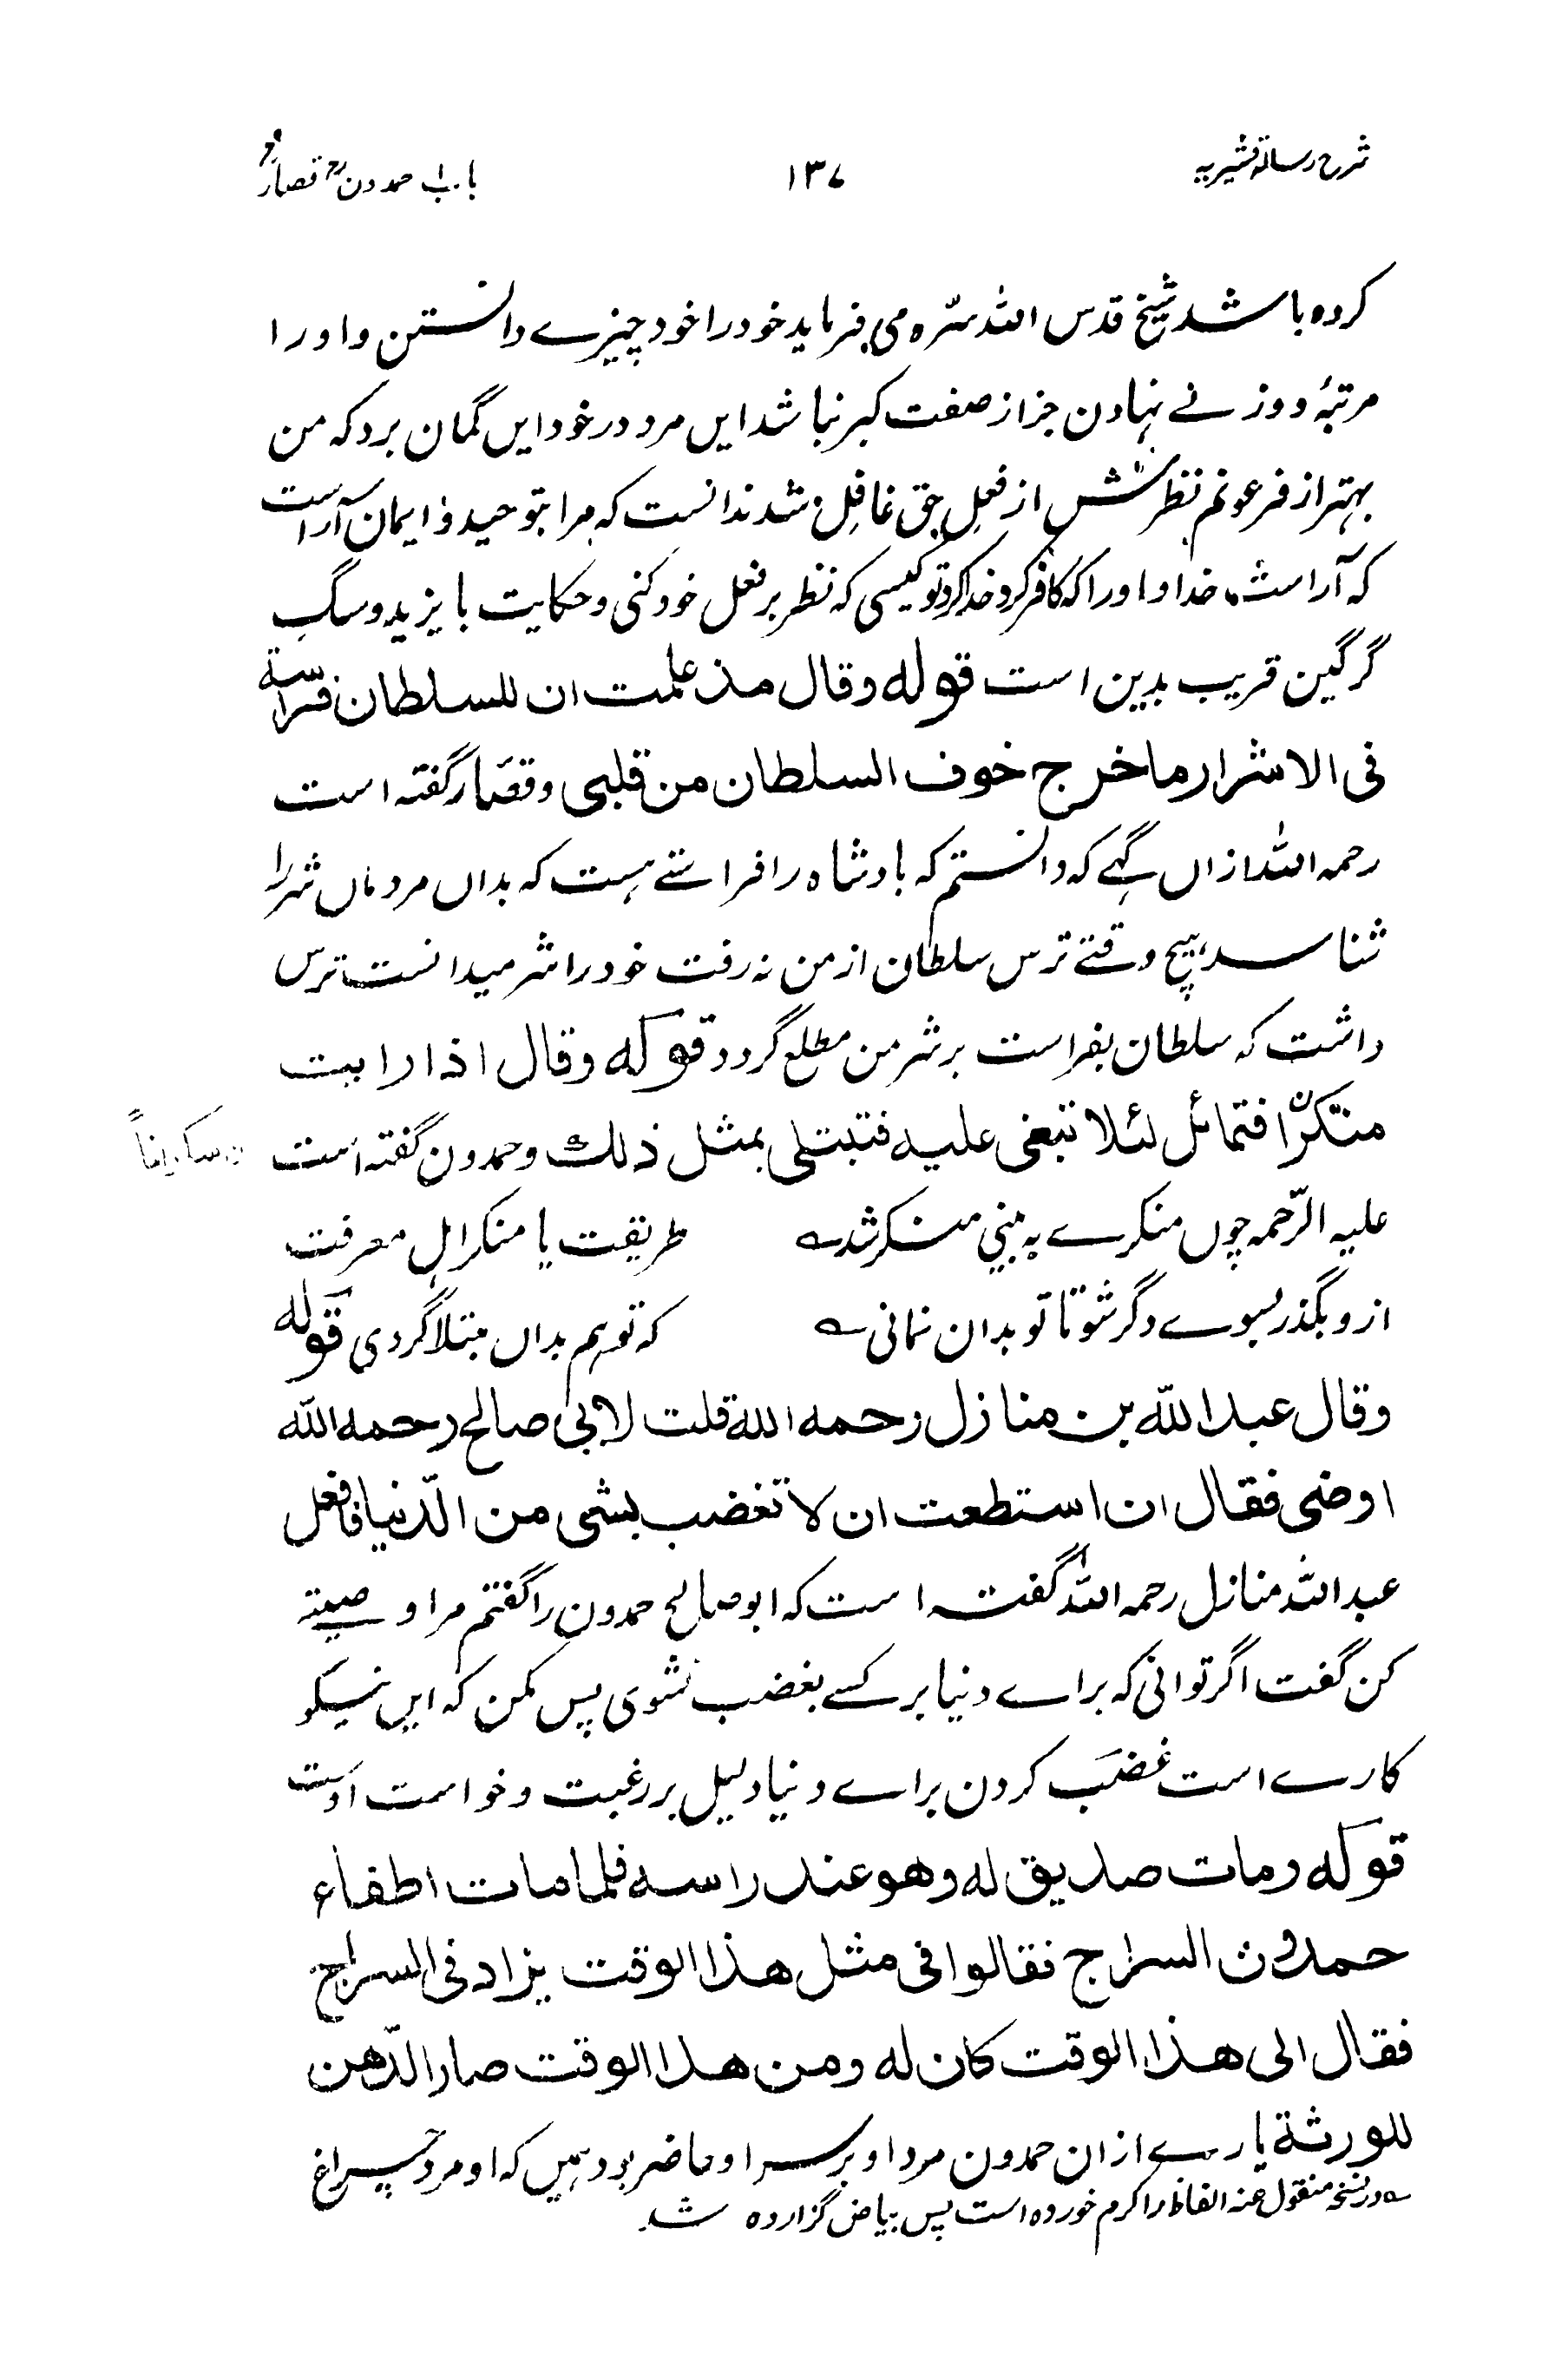 شرح رسالۂ قشیریہ
۱۳۷
باب حمدونؒ قصارؒ
کرده باشد شیخ قدس الله سرّه می فرماید خود را خود چیزے دانستن و او را
مرتبۂ و وزنے نہادن جز از صفت کبر نباشد ایں مرد در خود ایں گمان برد کہ من
بہتر از فرعونم نظرش از فعلِ حق غافل شد ندانست کہ مرا بتوحید و ایمان آراست
کہ آراست، خدا و او را کہ کافر کرد خدا کرد تو کیستی کہ نظر بر فعل خود کنی و حکایت بایزید و سگِ
گرگین قریب بدین است قوله وقال مذ علمت ان للسلطان فراسة
فی الاشرار ما خرج خوف السلطان من قلبی و قصّار گفته است
رحمہ الله ازاں گہے کہ دانستم کہ بادشاه را فراستے ہست کہ بداں مردماں شر را
شناسد ہیچ وقتے ترس سلطان از من نہ رفت خود را شر میدانست ترس
داشت کہ سلطان بفراست بر شر من مطلع گردد قوله وقال اذا رایت
منکرًا فتمائل لئلا تبغی علیه فتبتلی بمثل ذلك و حمدون گفته است
علیہ الرّحمہ چوں منکرے بہ بینی منکر شد؎ طریقت یا منکر اہل معرفت
از و بگذر بسوے دگر شو تا تو بدان نمانی؎ کہ تو ہم بداں مبتلا گردی قوله
وقال عبد الله بن منازل رحمه الله قلت لابی صالح رحمه الله
اوصنی فقال ان استطعت ان لا تغضب بشی من الدّنیا فافعل
عبد الله منازل رحمہ الله گفتہ است کہ ابو صالح حمدون را گفتم مرا وصیتے
کن گفت اگر توانی کہ براے دنیا بر کسے بغضب نشوی پس مکن کہ ایں نیکو
کارے است غضب کردن براے دنیا دلیل بر رغبت و خواست اوست
قوله ومات صدیق له وهو عند راسه فلما مات اطفاء
حمدون السراج فقالوا فی مثل هذا الوقت یزاد فی السراج
فقال الی هذا الوقت کان له ومن هذا الوقت صار الدّهن
للورثة یارے ازان حمدون مرد او بر سر او حاضر بود ہمیں کہ او مرد چراغ
؎ در نسخہ منقول عنہ الفاظ را کرم خورده است پس بیاض گزارده شد